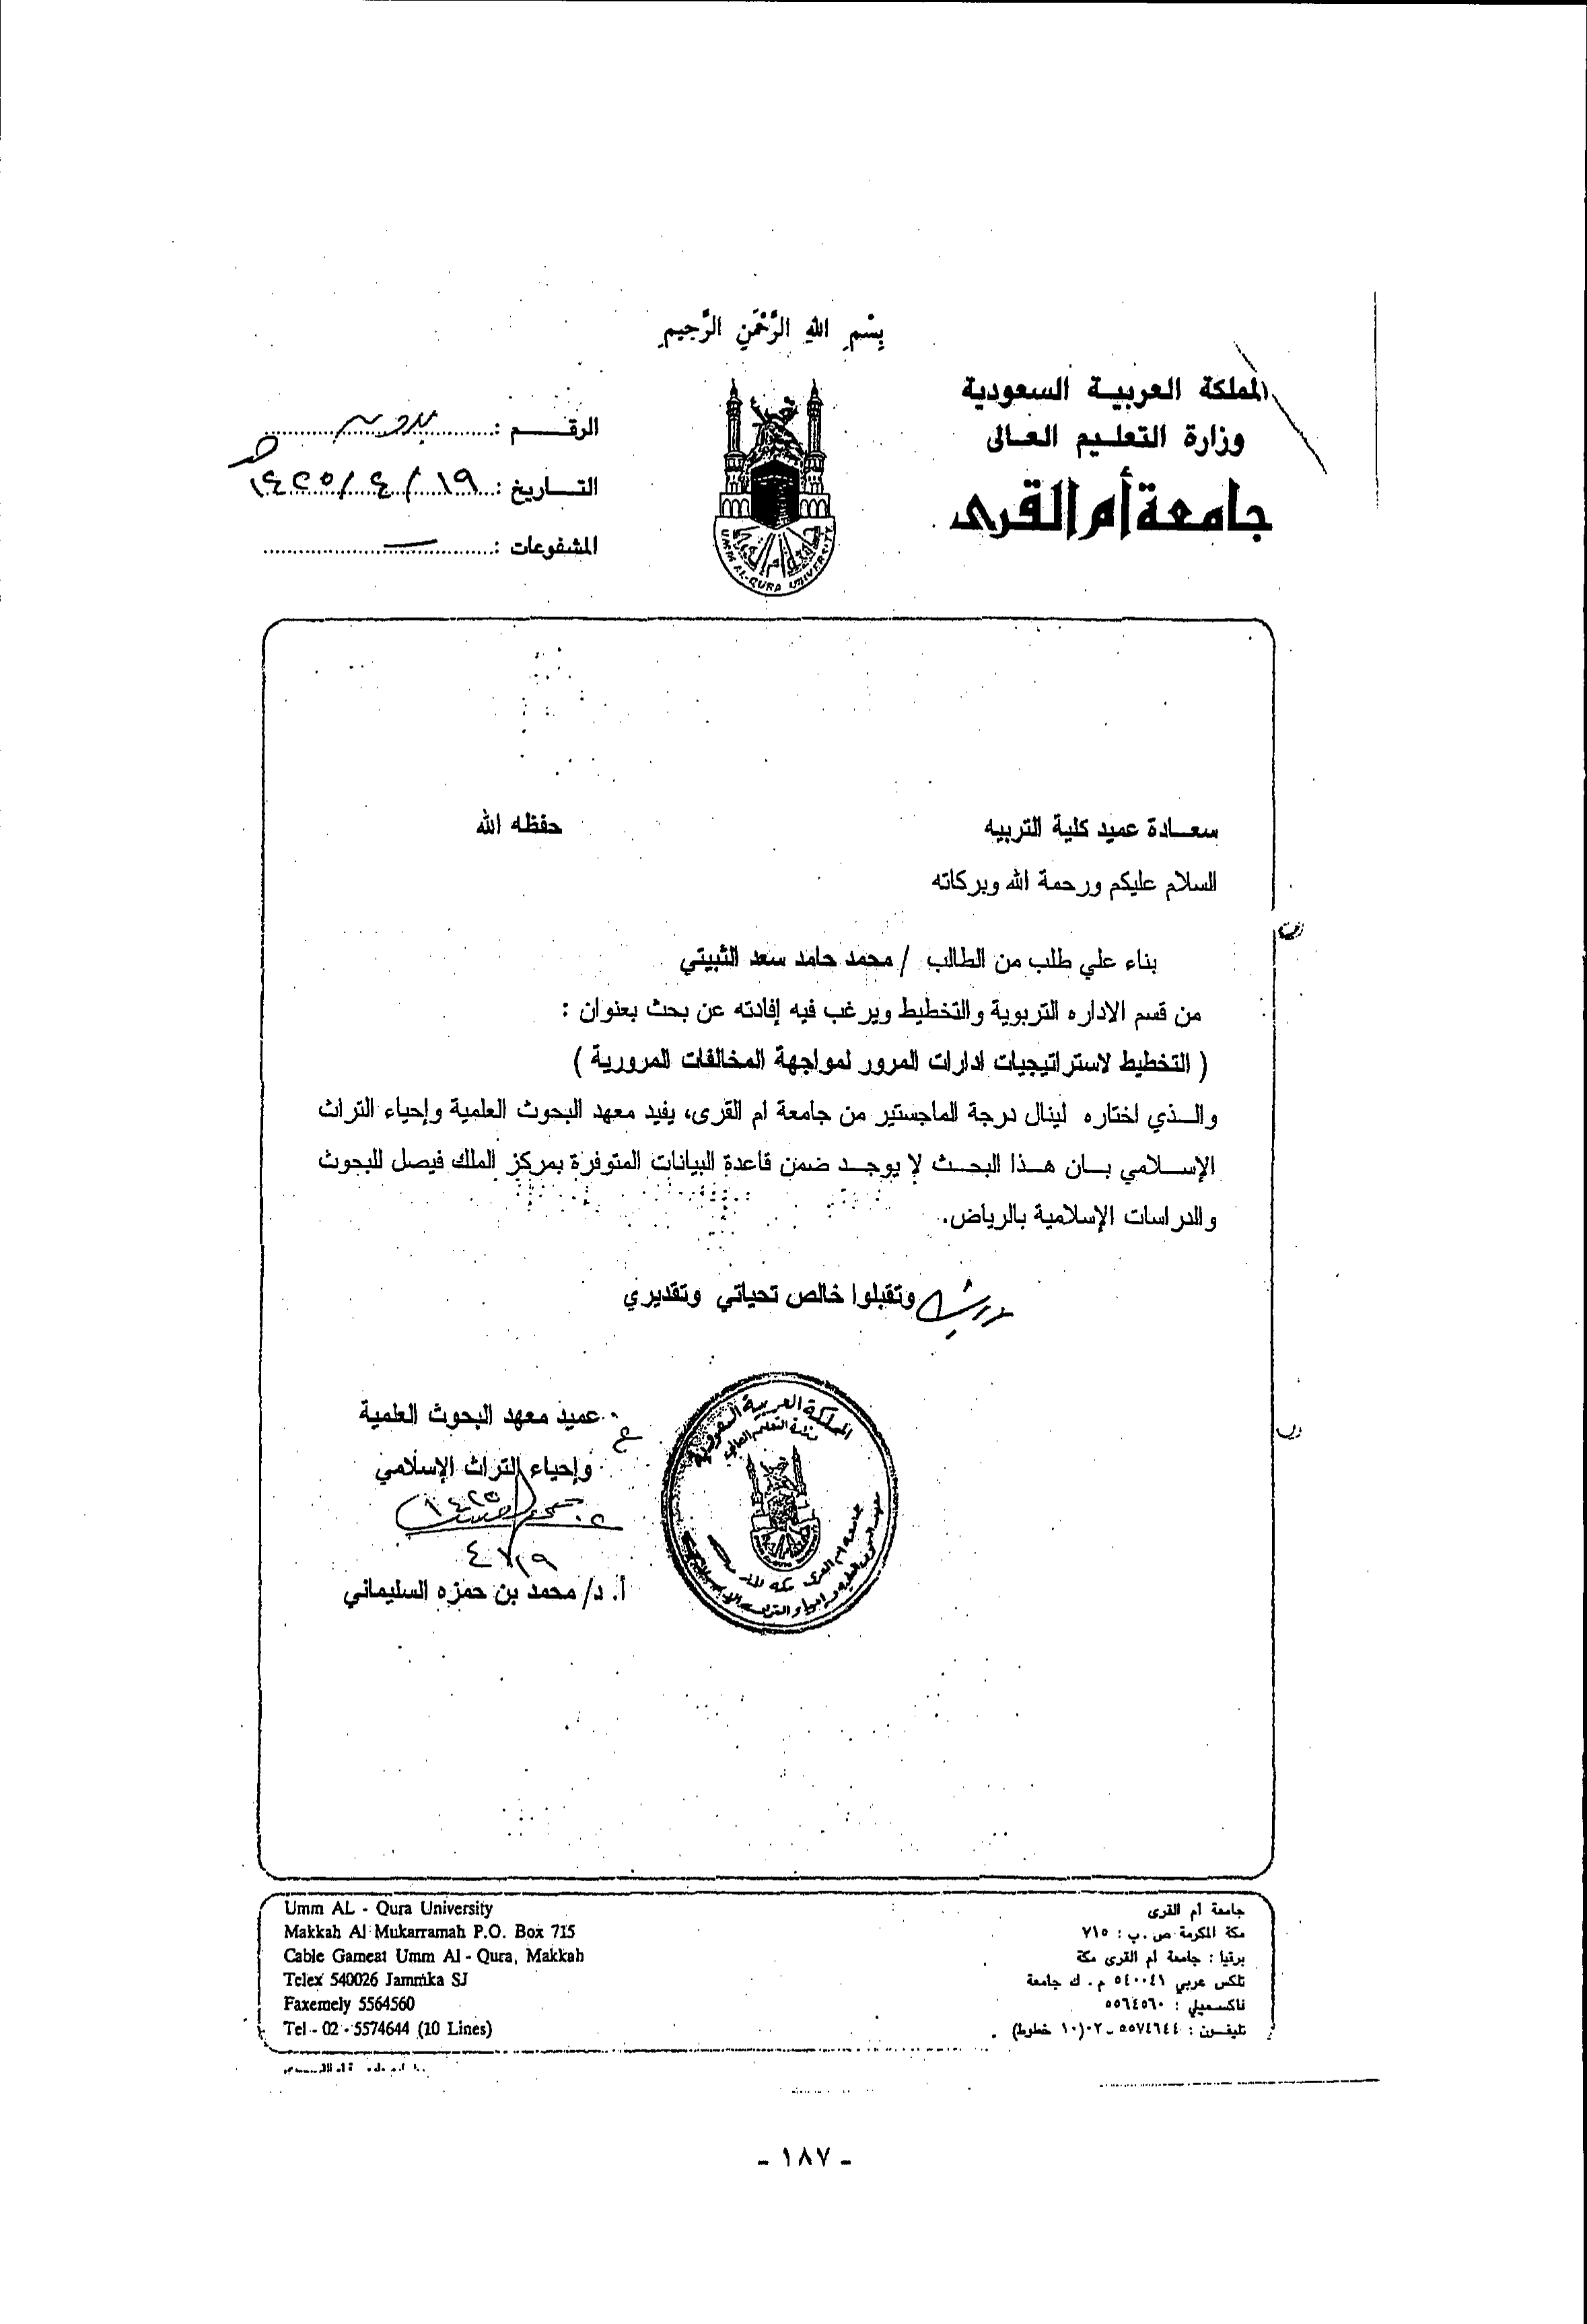 بِسْمِ اللهِ الرَّحْمَنِ الرَّحِيمِ
المملكة العربية السعودية
وزارة التعليم العالى
جامعة أم القرى
الرقم : بدون
التاريخ : ١٩ / ٤ / ١٤٢٥ هـ
المشفوعات : ــ
UMM AL-QURA UNIVERSITY
سعادة عميد كلية التربيه حفظه الله
السلام عليكم ورحمة الله وبركاته
بناء علي طلب من الطالب / محمد حامد سعد الثبيتي
من قسم الاداره التربوية والتخطيط ويرغب فيه إفادته عن بحث بعنوان :
( التخطيط لاستراتيجيات ادارات المرور لمواجهة المخالفات المرورية )
والذي اختاره لينال درجة الماجستير من جامعة ام القرى، يفيد معهد البحوث العلمية وإحياء التراث
الإسلامي بان هذا البحث لا يوجد ضمن قاعدة البيانات المتوفرة بمركز الملك فيصل للبحوث
والدراسات الإسلامية بالرياض.
وتقبلوا خالص تحياتي وتقديري
عميد معهد البحوث العلمية
وإحياء التراث الإسلامي
١٤٢٥
٤/١٩
أ. د/ محمد بن حمزه السليماني
المملكة العربية السعودية
وزارة التعليم العالي
جامعة ام القرى مكة المكرمة
Umm AL - Qura University
Makkah Al Mukarramah P.O. Box 715
Cable Gameat Umm Al - Qura, Makkah
Telex 540026 Jammka SJ
Faxemely 5564560
Tel - 02 - 5574644 (10 Lines)
جامعة أم القرى
مكة المكرمة ص . ب : ٧١٥
برقيا : جامعة أم القرى مكة
تلكس عربي ٥٤٠٠٤١ م . ك جامعة
فاكسميلي : ٥٥٦٤٥٦٠
تليفون : ٥٥٧٤٦٤٤ - ٠٢ (١٠ خطوط)
- ١٨٧ -